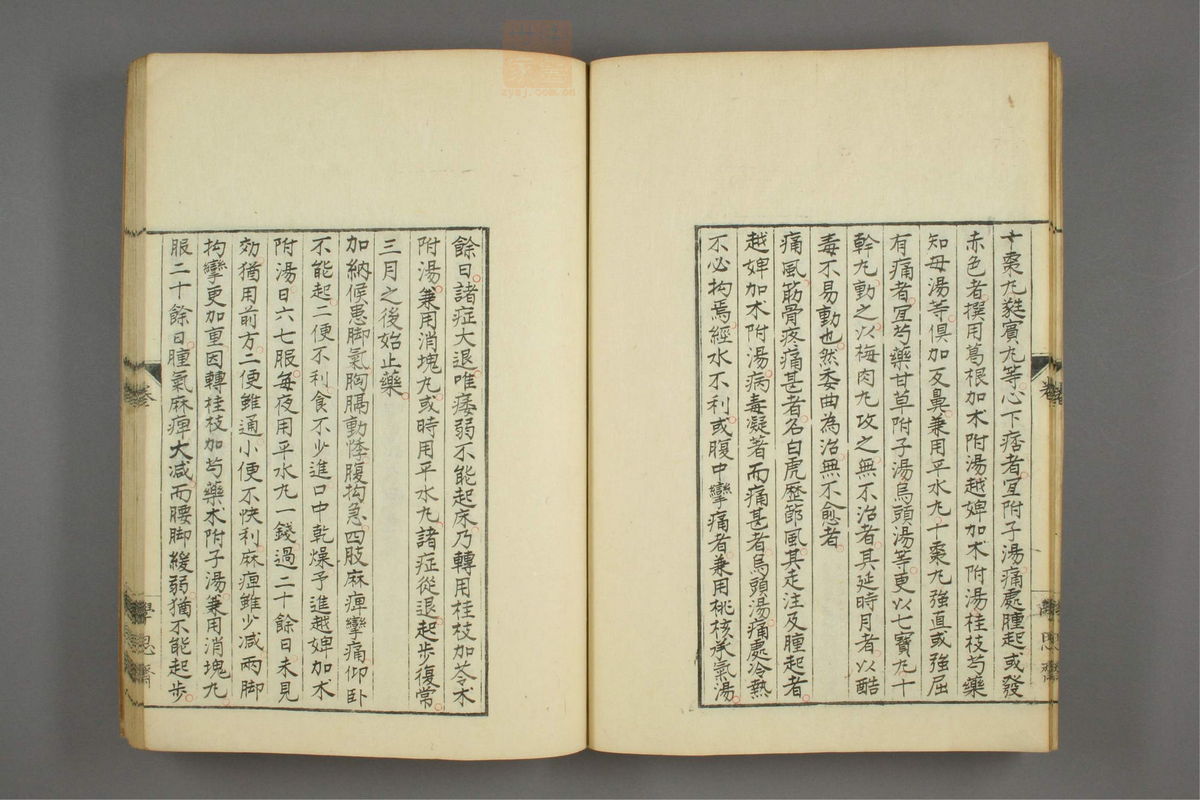 十棗丸蕤賓丸等心下痞者宜附子湯痛處腫起或發
赤色者撰用葛根加术附湯越婢加术附湯桂枝芍藥
知母湯等俱加反鼻兼用平水丸十棗丸強直或強屈
有痛者宜芍藥甘草附子湯烏頭湯等更以七寶丸十
幹丸動之以梅肉丸攻之無不治者其延時月者以酷
毒不易動也然委曲為治無不愈者
痛風筋骨疼痛甚者名白虎歷節風其走注及腫起者
越婢加术附湯病毒凝著而痛甚者烏頭湯痛處冷熱
不必拘焉經水不利或腹中攣痛者兼用桃核承氣湯
餘日諸症大退唯痿弱不能起床乃轉用桂枝加苓术
附湯兼用消塊丸或時用平水丸諸症從退起步復常
三月之後始止藥
加納候患脚氣胸膈動悸腹拘急四肢麻痺攣痛仰卧
不能起二便不利食不少進口中乾燥予進越婢加术
附湯日六七服每夜用平水丸一錢過二十餘日未見
効猶用前方二便雖通小便不快利麻痺雖少減兩脚
拘攣更加重因轉桂枝加芍藥术附子湯兼用消塊丸
服二十餘日腫氣麻痺大减而腰脚緩弱猶不能起步
學思齋